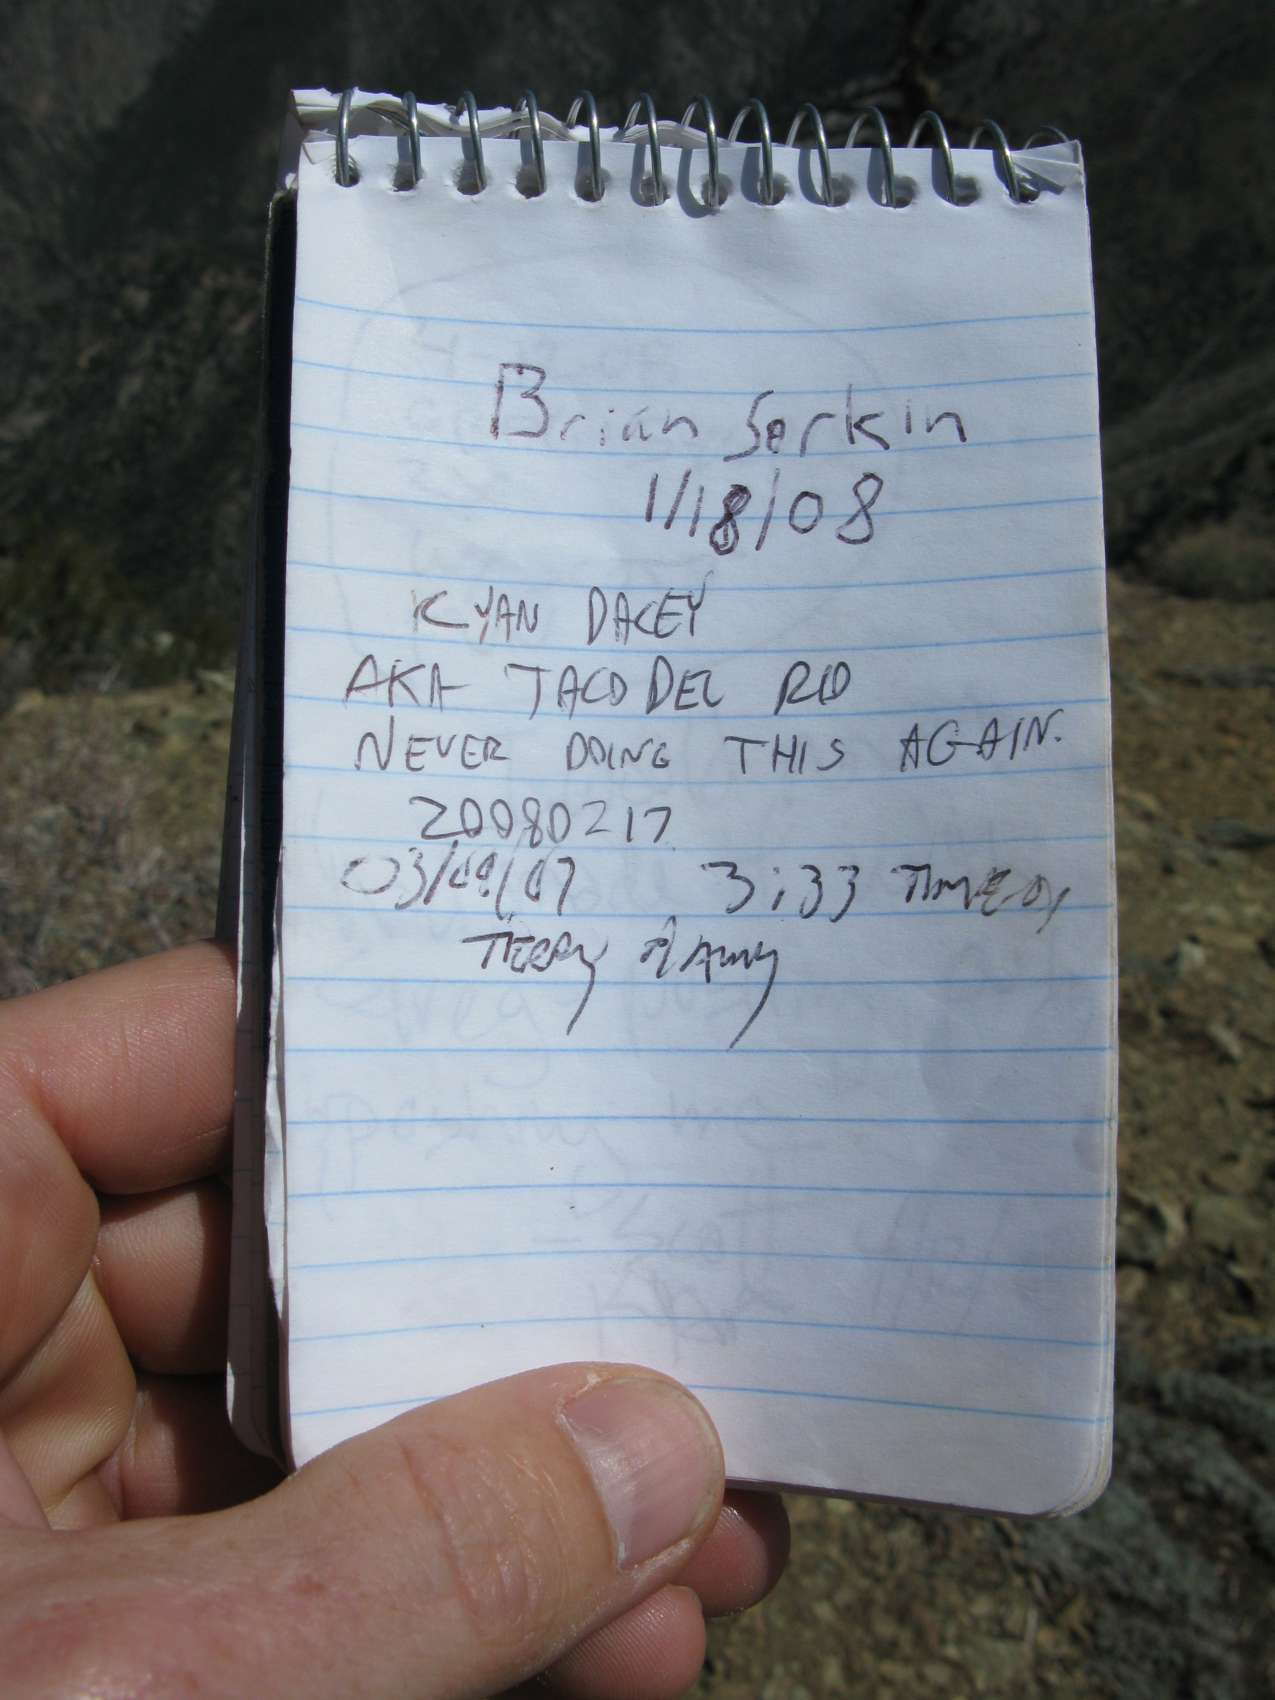 Brian Sorkin
1/18/08
RYAN DACEY
AKA TACO DEL RIO
NEVER DOING THIS AGAIN.
20080217
03/09/07 3:33 TIME
TERRY